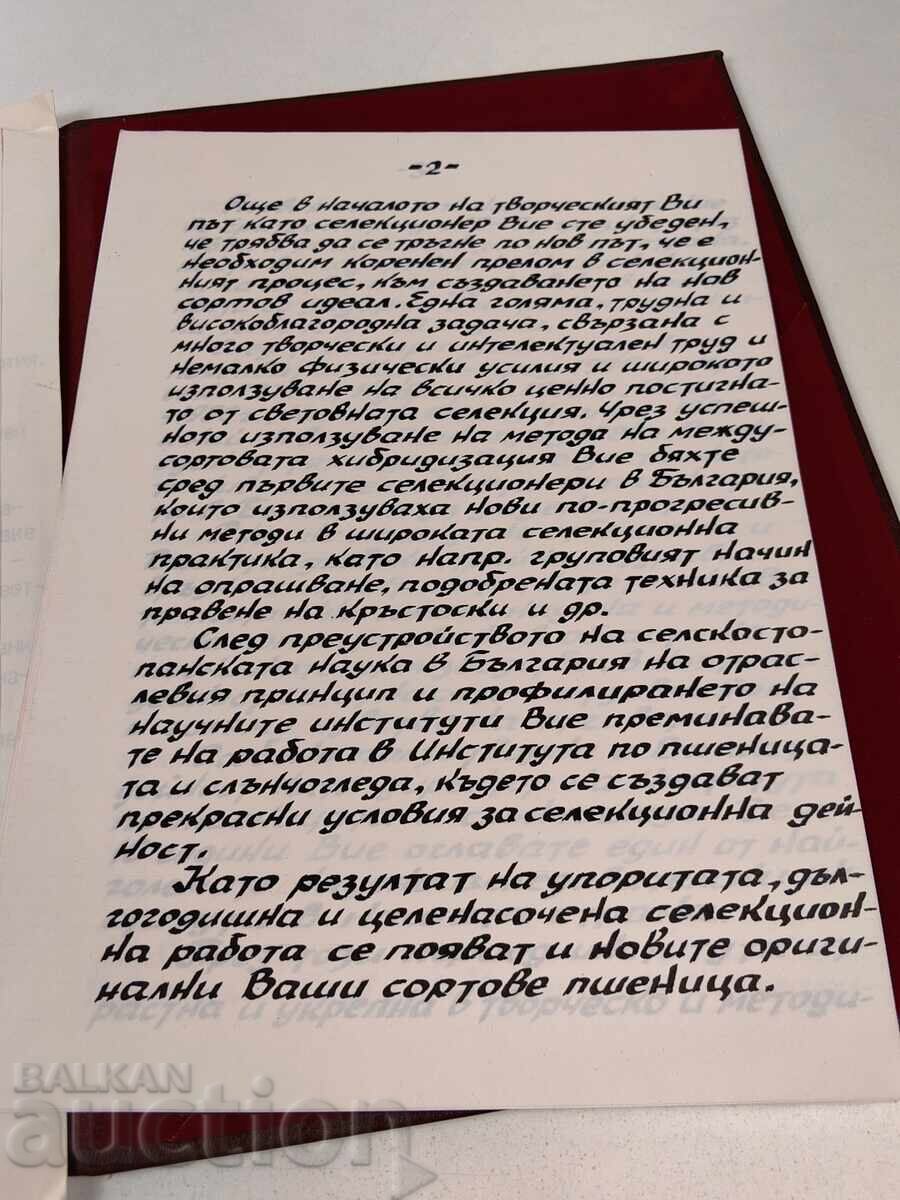 -2-
Още в началото на творческият Ви
път като селекционер Вие сте убеден,
че трябва да се тръгне по нов път, че е
необходим коренен прелом в селекцион-
ният процес, към създаването на нов
сортов идеал. Една голяма, трудна и
високоблагородна задача, свързана с
много творчески и интелектуален труд и
немалко физически усилия и широкото
използуване на всичко ценно постигна-
то от световната селекция. Чрез успеш-
ното използуване на метода на между-
сортовата хибридизация Вие бяхте
сред първите селекционери в България,
които използуваха нови по-прогресив-
ни методи в широката селекционна
практика, като напр. груповият начин
на опрашване, подобрената техника за
правене на кръстоски и др.
След преустройството на селскосто-
панската наука в България на отрас-
левия принцип и профилирането на
научните институти Вие преминава-
те на работа в Института по пшеница-
та и слънчогледа, където се създават
прекрасни условия за селекционна дей-
ност.
Като резултат на упоритата, дъл-
гогодишна и целенасочена селекцион-
на работа се появат и новите ориги-
нални Ваши сортове пшеница.
BALKAN
auction